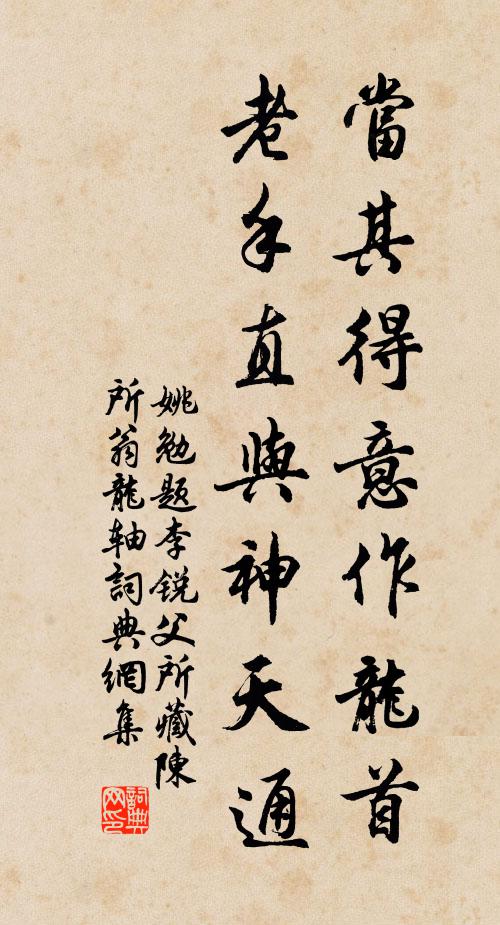 當其得意作龍首
老手直與神天通
姚勉題李銳父所藏陳
所翁龍軸詞典網集
詞典网印